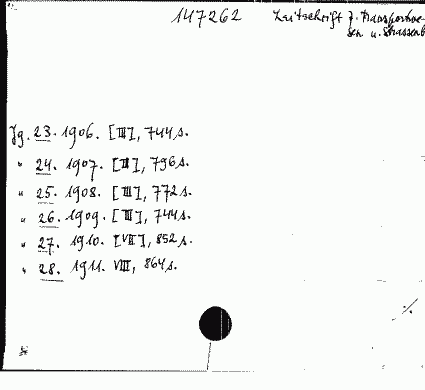 147262 Zeitschrift f. Transportwe-
sen u. Strassenb
Jg. 23. 1906. [III], 744 s.
" 24. 1907. [III], 796 s.
" 25. 1908. [III], 772 s.
" 26. 1909. [III], 744 s.
" 27. 1910. [VII], 852 s.
" 28. 1911. VIII, 864 s.
./.